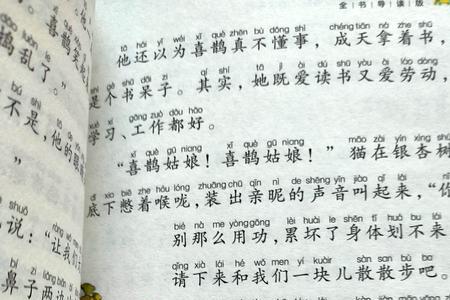 全书导读版
tā hái yǐ wéi xǐ què zhēn bù dǒng shì chéng tiān ná zhe shū
他还以为喜鹊真不懂事，成天拿着书，
shì gè shū dāi zi qí shí tā jì ài dú shū yòu ài láo dòng
是个书呆子。其实，她既爱读书又爱劳动，
xué xí gōng zuò dōu hǎo
学习、工作都好。
xǐ què gū niang xǐ què gū niang māo zài yín xìng shù
“喜鹊姑娘！喜鹊姑娘！”猫在银杏树
dǐ xià biē zhe hóu lóng zhuāng chū qīn nì de shēng yīn jiào qǐ lái nǐ
底下憋着喉咙，装出亲昵的声音叫起来，“你
bié nà me yòng gōng lèi huài le shēn tǐ huá bu lái
别那么用功，累坏了身体划不来
qǐng xià lái hé wǒ men yí kuàir sàn sàn bù ba
请下来和我们一块儿散散步吧。
乱了。
不是，他的眼
”
说：“让我们
鼻子两边